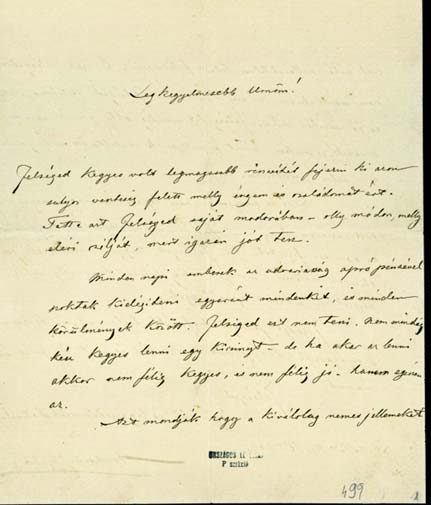 Legkegyelmesebb Uram!
Felséged kegyes volt legmagasabb részvétét fejezni ki azon
sulyos veszteség felett melly engem és családomat ért.
Tette azt Felséged saját modorában – olly módon, melly
eléri czélját, mert igazán jót tesz.
Minden napi emberek az udvariasság apró pénzével
szoktak kielégiteni egyaránt mindenkit, és minden
körülmények között. Felséged ezt nem teszi. Nem mindig
kész kegyes lenni egy kicsinyt – de ha akar az lenni
akkor nem félig kegyes, és nem félig jó – hanem egészen
az.
Azt mondják hogy a kiválólag nemes jellemeket
ORSZÁGOS
P szekció
499